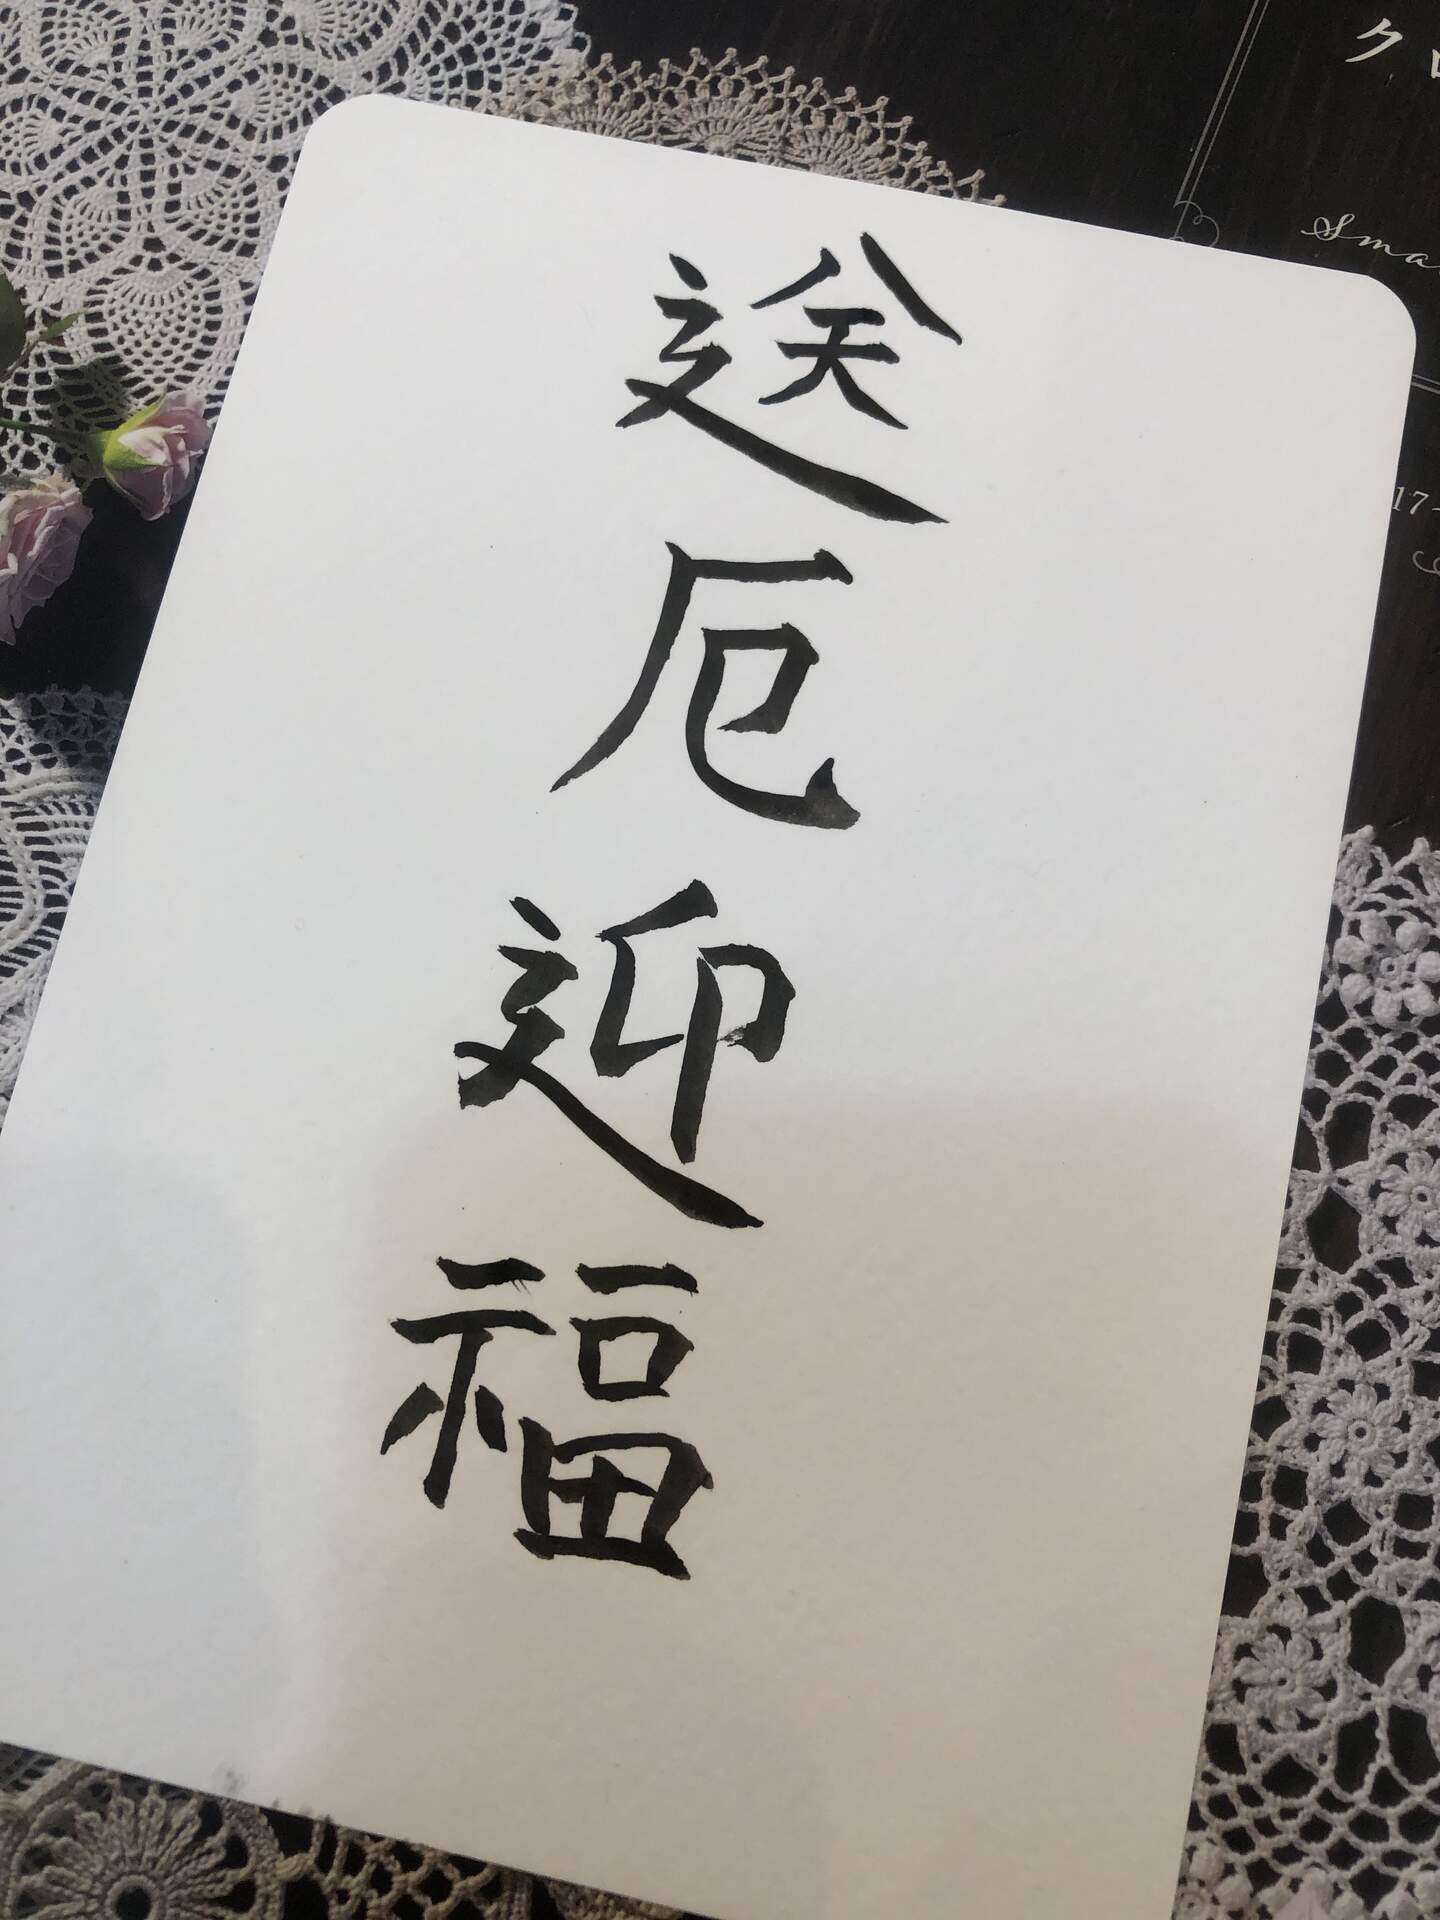 送厄迎福
ク
Sma
17-